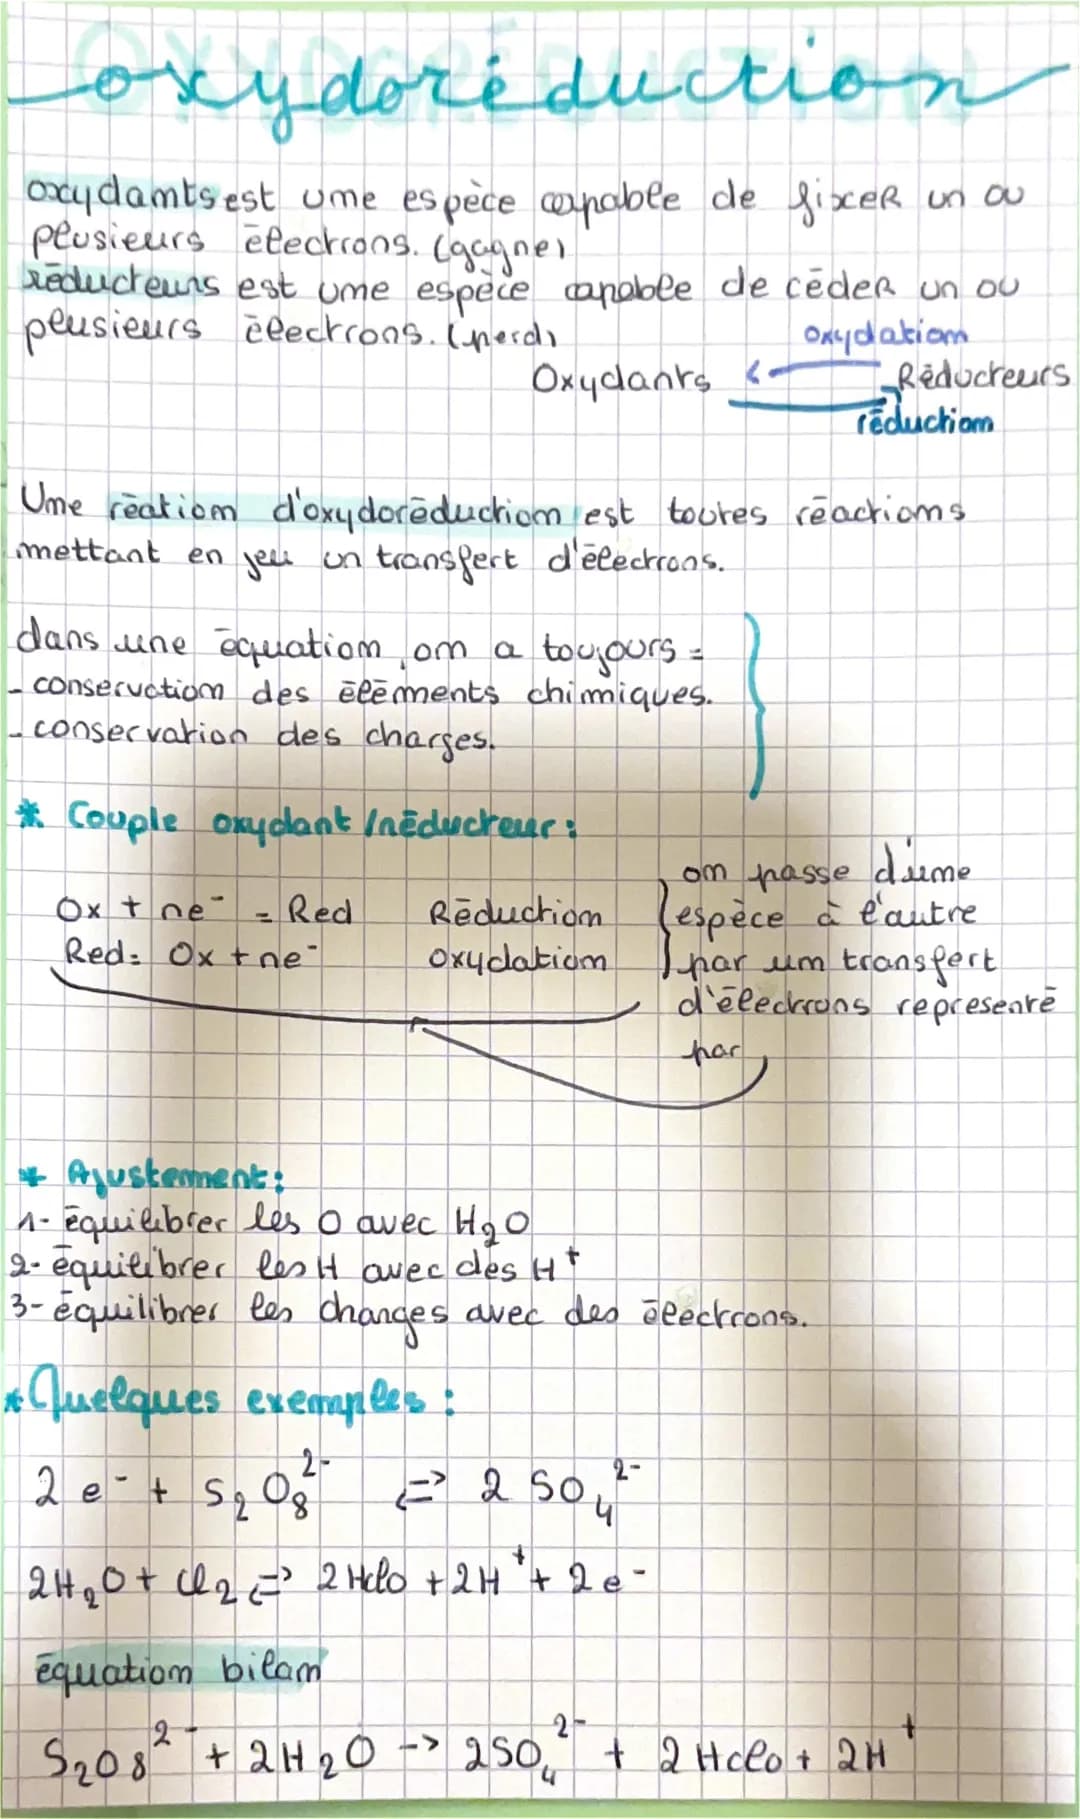 oxydoréduction
oxydants est une espèce capable de fixer un ou
plusieurs électrons. (gagne)
réducteurs est une espèce capable de céder un ou
plusieurs électrons. (perd)
oxydation
Oxydants Réducteurs
réduction
Une réation d'oxydoréduction est toutes réactions
mettant en jeu un transfert d'électrons.
dans une équation, on a toujours =
- conservation des éléments chimiques.
- conservation des charges.
* Couple oxydant / réducteur :
on passe d'une
Ox + ne⁻ = Red Réduction espèce à l'autre
Red = Ox + ne⁻ oxydation par un transfert
d'électrons representé
par
* Ajustement :
1- équilibrer les O avec H₂O
2- équilibrer les H avec des H⁺
3- équilibrer les charges avec des électrons.
* Quelques exemples :
2 e⁻ + S₂O₈²⁻ ⇌ 2 SO₄²⁻
2H₂O + Cl₂ ⇌ 2 HClO + 2H⁺ + 2 e⁻
équation bilan
S₂O₈²⁻ + 2H₂O -> 2SO₄²⁻ + 2 HClO + 2H⁺